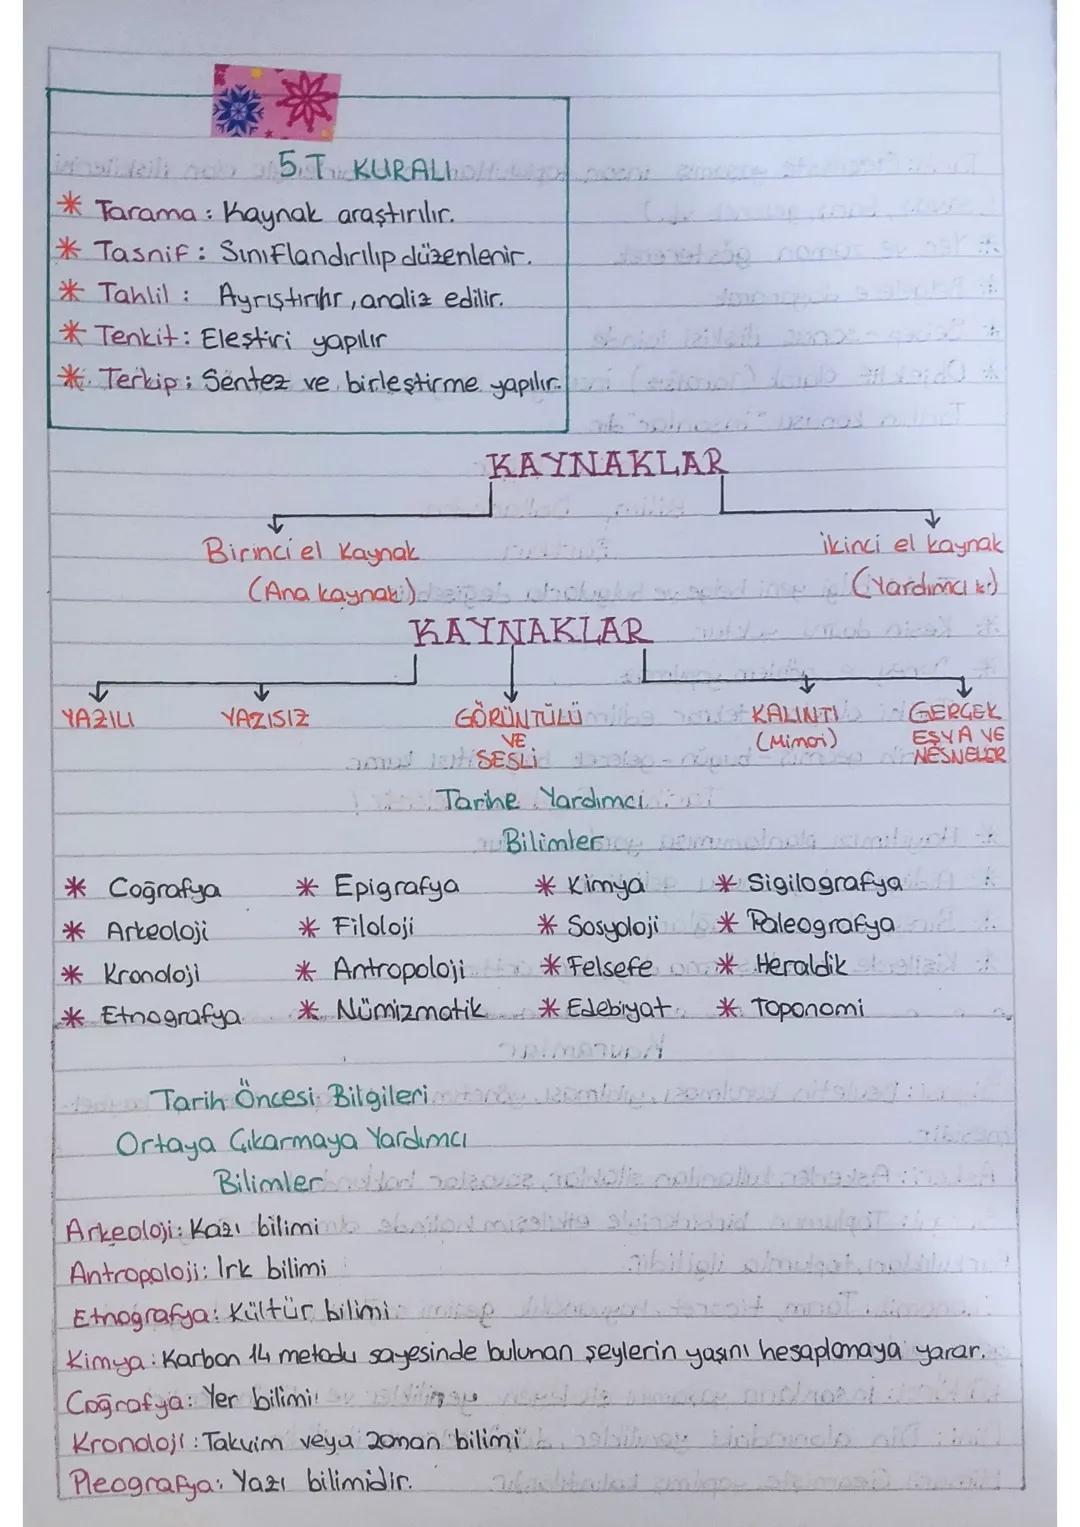 5.T KURALI
* Tarama : Kaynak araştırılır.
* Tasnif : Sınıflandırılıp düzenlenir.
* Tahlil : Ayrıştırılır, analiz edilir.
* Tenkit : Eleştiri yapılır
* Terkip : Sentez ve birleştirme yapılır.
KAYNAKLAR
Birinci el Kaynak ikinci el kaynak
(Ana kaynak) (Yardımcı k.)
KAYNAKLAR
YAZILI YAZISIZ GÖRÜNTÜLÜ KALINTI GERÇEK
VE (Mimari) EŞYA VE
SESLİ NESNELER
Tarihe Yardımcı
Bilimler
* Coğrafya * Epigrafya * Kimya * Sigilografya
* Arkeoloji * Filoloji * Sosyoloji * Paleografya
* Kronoloji * Antropoloji * Felsefe * Heraldik
* Etnografya * Nümizmatik * Edebiyat * Toponomi
Tarih Öncesi Bilgileri
Ortaya Çıkarmaya Yardımcı
Bilimler
Arkeoloji: Kazı bilimi
Antropoloji: Irk bilimi
Etnografya: Kültür bilimi
Kimya: Karbon 14 metodu sayesinde bulunan şeylerin yaşını hesaplamaya yarar.
Coğrafya: Yer bilimi
Kronoloji : Takvim veya zaman bilimi
Pleografya: Yazı bilimidir.